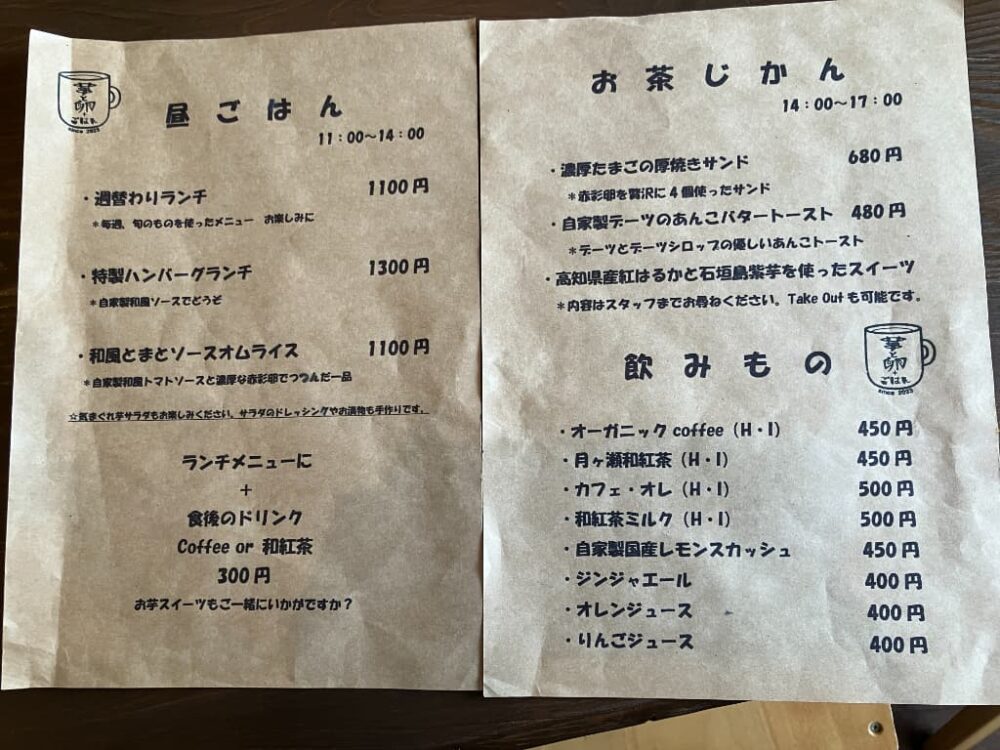 芋と卵
ごはん
since 2023
昼ごはん
11：00～14：00
・週替わりランチ 1100円
＊毎週、旬のものを使ったメニュー　お楽しみに
・特製ハンバーグランチ 1300円
＊自家製和風ソースでどうぞ
・和風とまとソースオムライス 1100円
＊自家製和風トマトソースと濃厚な赤彩卵でつつんだ一品
☆気まぐれ芋サラダもお楽しみください。サラダのドレッシングやお漬物も手作りです。
ランチメニューに
＋
食後のドリンク
Coffee or 和紅茶
300円
お芋スイーツもご一緒にいかがですか？
お茶じかん
14：00～17：00
・濃厚たまごの厚焼きサンド 680円
＊赤彩卵を贅沢に4個使ったサンド
・自家製デーツのあんこバタートースト 480円
＊デーツとデーツシロップの優しいあんこトースト
・高知県産紅はるかと石垣島紫芋を使ったスイーツ
＊内容はスタッフまでお尋ねください。Take Outも可能です。
飲みもの
芋と卵
ごはん
since 2023
・オーガニックcoffee（H・I） 450円
・月ヶ瀬和紅茶（H・I） 450円
・カフェ・オレ（H・I） 500円
・和紅茶ミルク（H・I） 500円
・自家製国産レモンスカッシュ 450円
・ジンジャエール 400円
・オレンジュース 400円
・りんごジュース 400円